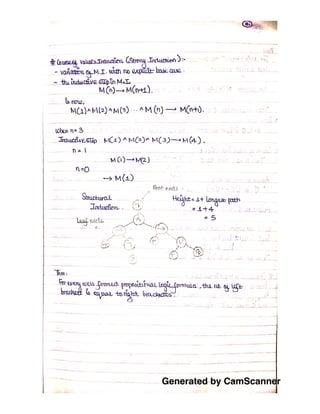 * Course of values Induction (Strong Induction) :-
- variation of M.I. with no explicit base case.
- the inductive step in M.I.
M(n) → M(n+1).
is now,
M(1) ^ M(2) ^ M(3) ... ^ M(n) → M(n+1).
when n=3
Inductive step M(1) ^ M(2) ^ M(3) → M(4).
n = 1
M(1) → M(2)
n=0
→ M(1)
Root node
Structural Induction
Height = 1 + longest path
= 1+4
= 5
Leaf node
Thm:
For every well formed propositional logic formula, the no. of left
brackets is equal to right brackets.
Generated by CamScanner